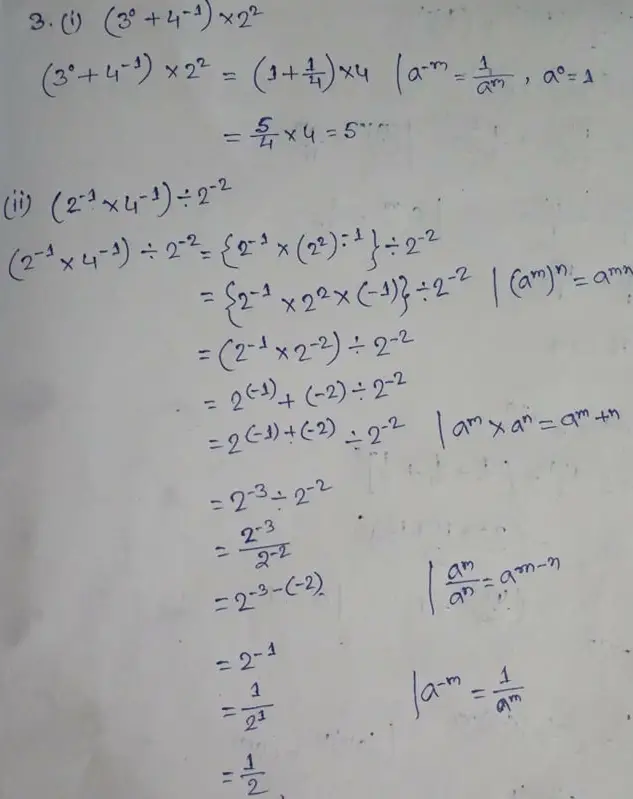 3. (i) (3⁰ + 4⁻¹) × 2²
(3⁰ + 4⁻¹) × 2² = (1 + 1/4) × 4 | a⁻ᵐ = 1/aᵐ , a⁰ = 1
= 5/4 × 4 = 5
(ii) (2⁻¹ × 4⁻¹) ÷ 2⁻²
(2⁻¹ × 4⁻¹) ÷ 2⁻² = {2⁻¹ × (2²)⁻¹} ÷ 2⁻²
= {2⁻¹ × 2^(2 × (-1))} ÷ 2⁻² | (aᵐ)ⁿ = aᵐⁿ
= (2⁻¹ × 2⁻²) ÷ 2⁻²
= 2⁽⁻¹⁾ + (-2) ÷ 2⁻²
= 2^((-1) + (-2)) ÷ 2⁻² | aᵐ × aⁿ = aᵐ⁺ⁿ
= 2⁻³ ÷ 2⁻²
= 2⁻³/2⁻²
= 2^(-3-(-2)) | aᵐ/aⁿ = aᵐ⁻ⁿ
= 2⁻¹
= 1/2¹ | a⁻ᵐ = 1/aᵐ
= 1/2